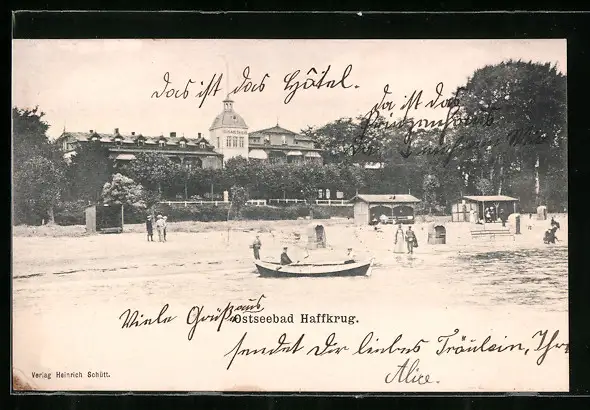 Das ist das Hôtel.
da ist das
Viele Grüße aus
Ostseebad Haffkrug.
sendet Dir liebes Fräulein, Ihre
Alice.
Verlag Heinrich Schütt.